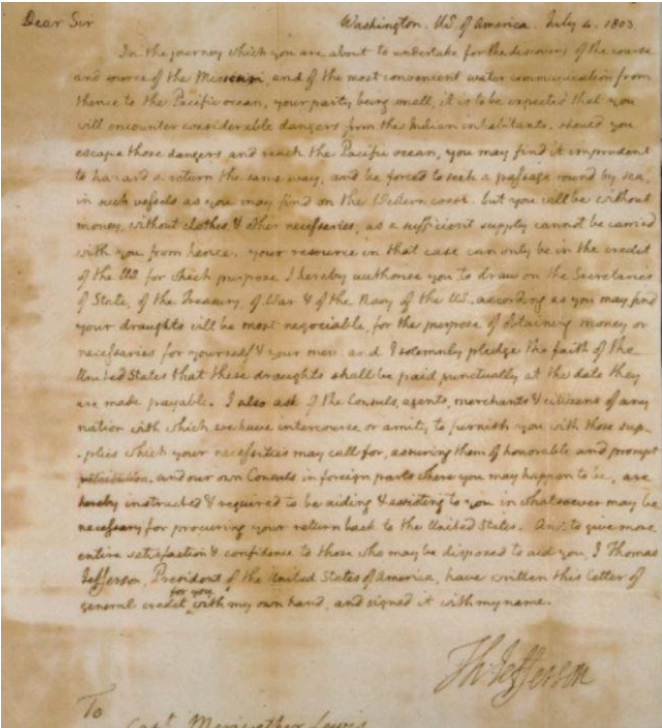 Dear Sir
Washington. US. of America. July 4. 1803.
In the journey which you are about to undertake for the discovery of the course
and source of the Missouri, and of the most convenient water communication from
thence to the Pacific ocean, your party being small, it is to be expected that you
will encounter considerable dangers from the Indian inhabitants. should you
escape those dangers and reach the Pacific ocean, you may find it imprudent
to hazard a return the same way, and be forced to seek a passage round by sea,
in such vessels as you may find on the Western coast. but you will be without
money, without clothes & other necessaries; as a sufficient supply cannot be carried
with you from hence. your resource in that case can only be in the credit
of the US. for which purpose I hereby authorise you to draw on the Secretaries
of State, of the Treasury, of War & of the Navy of the US. according as you may find
your draughts will be most negociable, for the purpose of obtaining money or
necessaries for yourself & your men: and I solemnly pledge the faith of the
United States that these draughts shall be paid punctually at the date they
are made payable. I also ask of the Consuls, agents, merchants & citizens of any
nation with which we have intercourse or amity to furnish you with those sup-
-plies which your necessities may call for, assuring them of honorable and prompt
retribution. and our own Consuls in foreign parts where you may happen to be, are
hereby instructed & required to be aiding & assisting to you in whatsoever may be
necessary for procuring your return back to the United States. And to give more
entire satisfaction & confidence to those who may be disposed to aid you, I Thomas
Jefferson, President of the United States of America, have written this letter of
general credit for you with my own hand, and signed it with my name.
Th: Jefferson
To
Capt. Meriwether Lewis